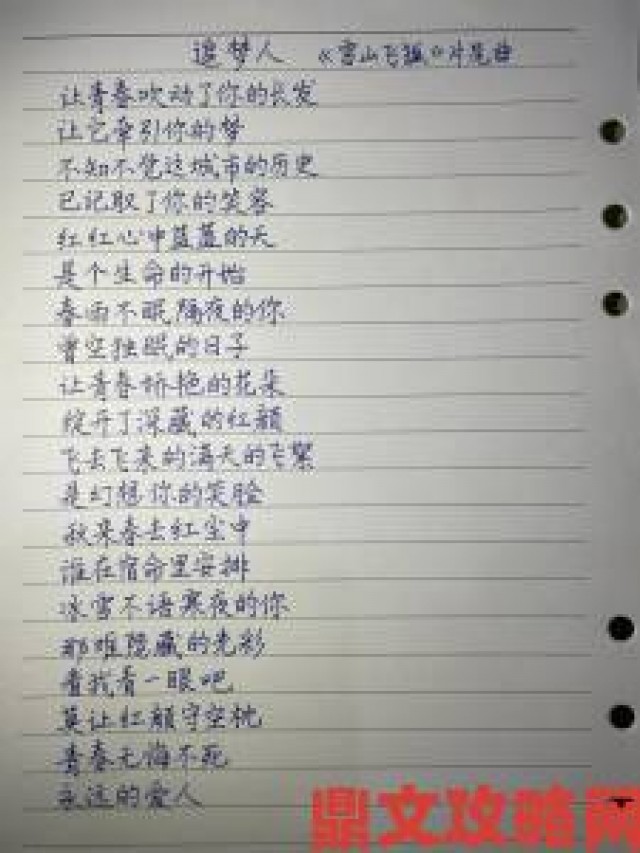 追梦人 《雪山飞狐》片尾曲
让青春吹动了你的长发
让它牵引你的梦
不知不觉这城市的历史
已记取了你的笑容
红红心中蓝蓝的天
是个生命的开始
春雨不眠隔夜的你
曾空独眠的日子
让青春娇艳的花朵
绽开了深藏的红颜
飞去飞来的满天的飞絮
是幻想你的笑脸
秋来春去红尘中
谁在宿命里安排
冰雪不语寒夜的你
那难隐藏的光彩
看我看一眼吧
莫让红颜守空枕
青春无悔不死
永远的爱人
鼎文攻略网